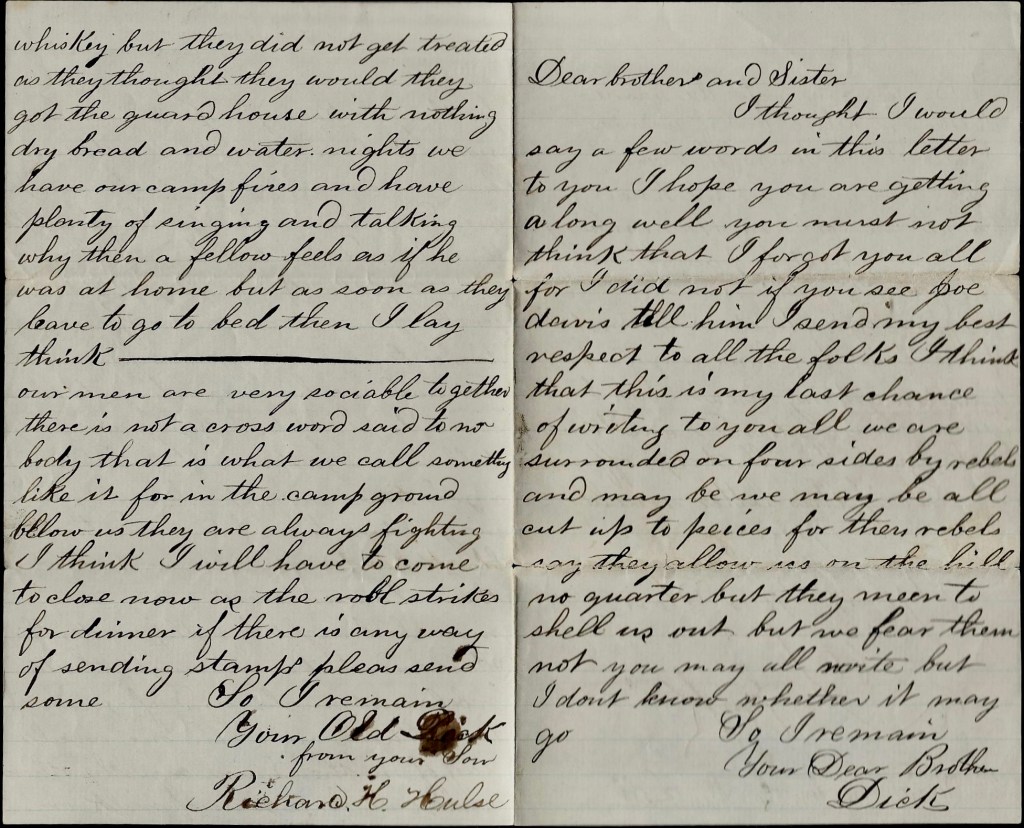 whiskey but they did not get treated
as they thought they would they
got the guard house with nothing
dry bread and water. nights we
have our camp fires and have
plenty of singing and talking
why then a fellow feels as if he
was at home but as soon as they
leave to go to bed then I lay
think
our men are very sociable together
there is not a cross word said to no
body that is what we call something
like it for in the camp ground
bllow us they are always fighting
I think I will have to come
to close now as the roll strikes
for dinner if there is any way
of sending stamps pleas send
some So I remain
Your Old Dick
from your Son
Richard. H. Hulse
Dear brother and Sister
I thought I would
say a few words in this letter
to you I hope you are getting
a long well you must not
think that I forgot you all
for I did not if you see Joe
davis tell him I send my best
respect to all the folks I think
that this is my last chance
of writing to you all we are
surrounded on four sides by rebels
and may be we may be all
cut up to peices for then rebels
say they allow us on the hill
no quarter but they meen to
shell us out but we fear them
not you may all write but
I dont know whether it may
go So I remain
Your Dear Brother
Dick